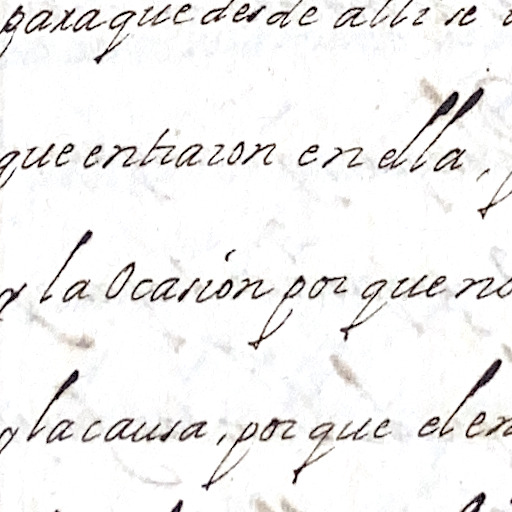 para que desde alli se
que entraron en ella,
y la Ocasion por que no
y la causa, por que el en